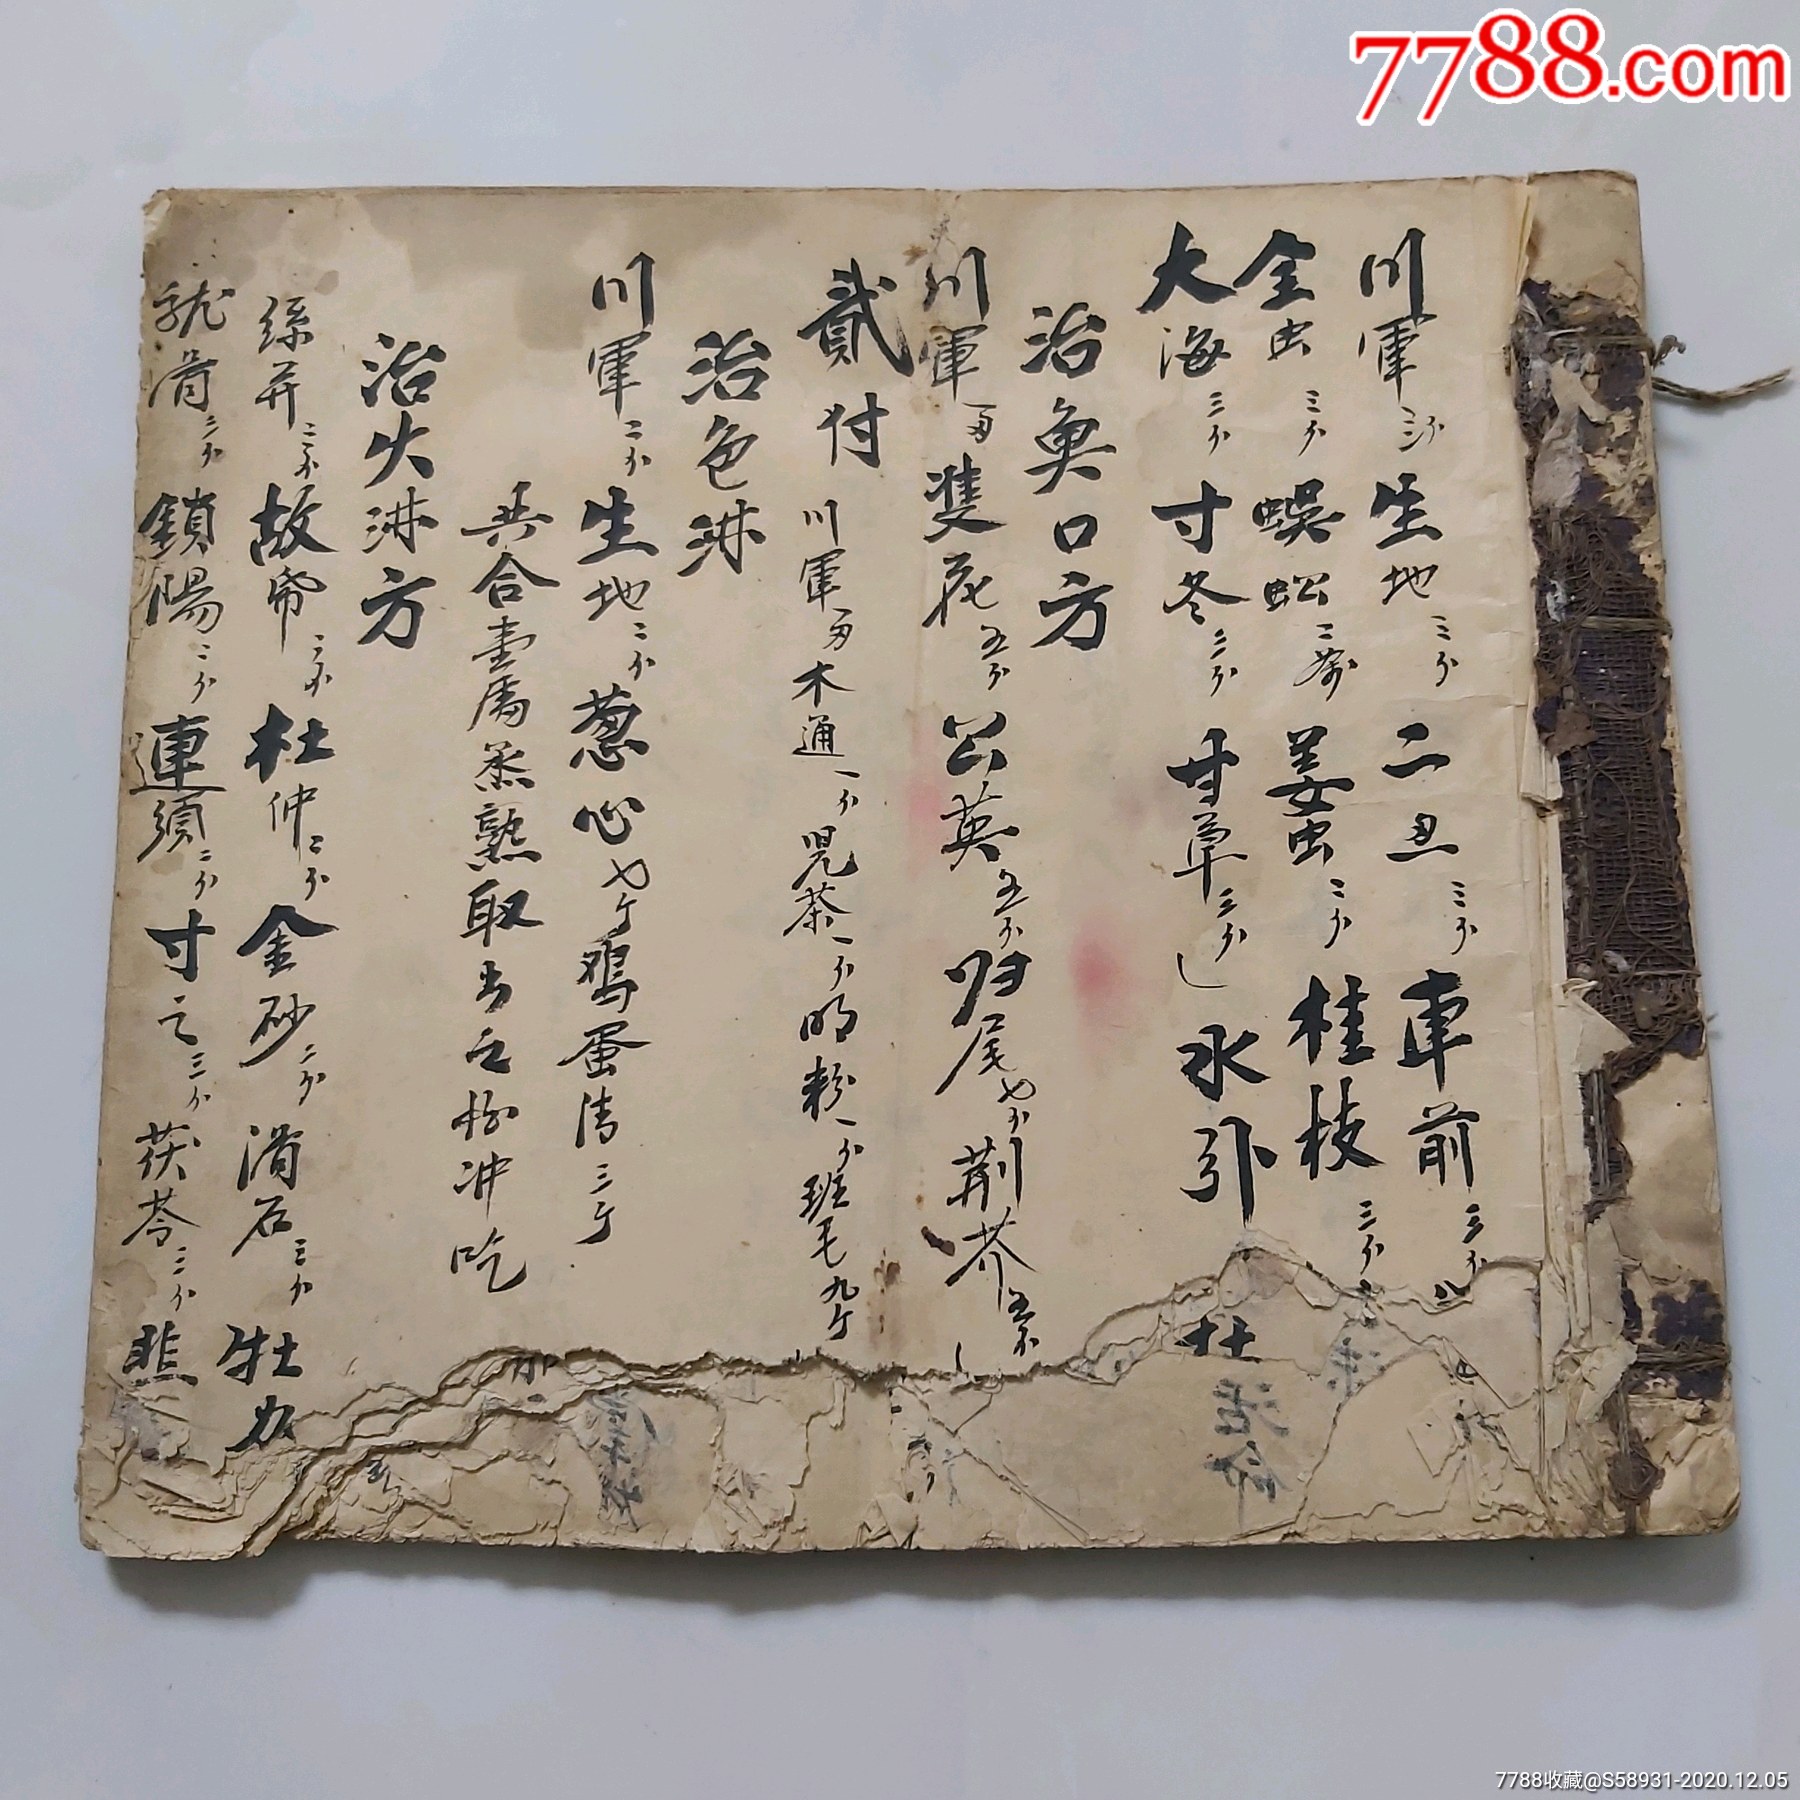 7788.com
川軍三分生地三分二丑三分車前三分
全虫三分蜈蚣二条姜虫三分桂枝三分
大海三分寸冬三分寸草三分水引
治奥口方
川軍雙花五分公英五分归尾七分荆芥五分
貳付川軍木通一分児茶一分明粉一分班毛九个
治色淋
川軍二分生地二分葱心七个鸡蛋清三个
共合壹處蒸熟取出冲吃
治火淋方
絲并二分故帋二分杜仲二分金砂二分滑石三分牡力
龙骨三分鎖陽二分蓮須二分寸云三分茯苓三分韭
7788收藏@S58931-2020.12.05